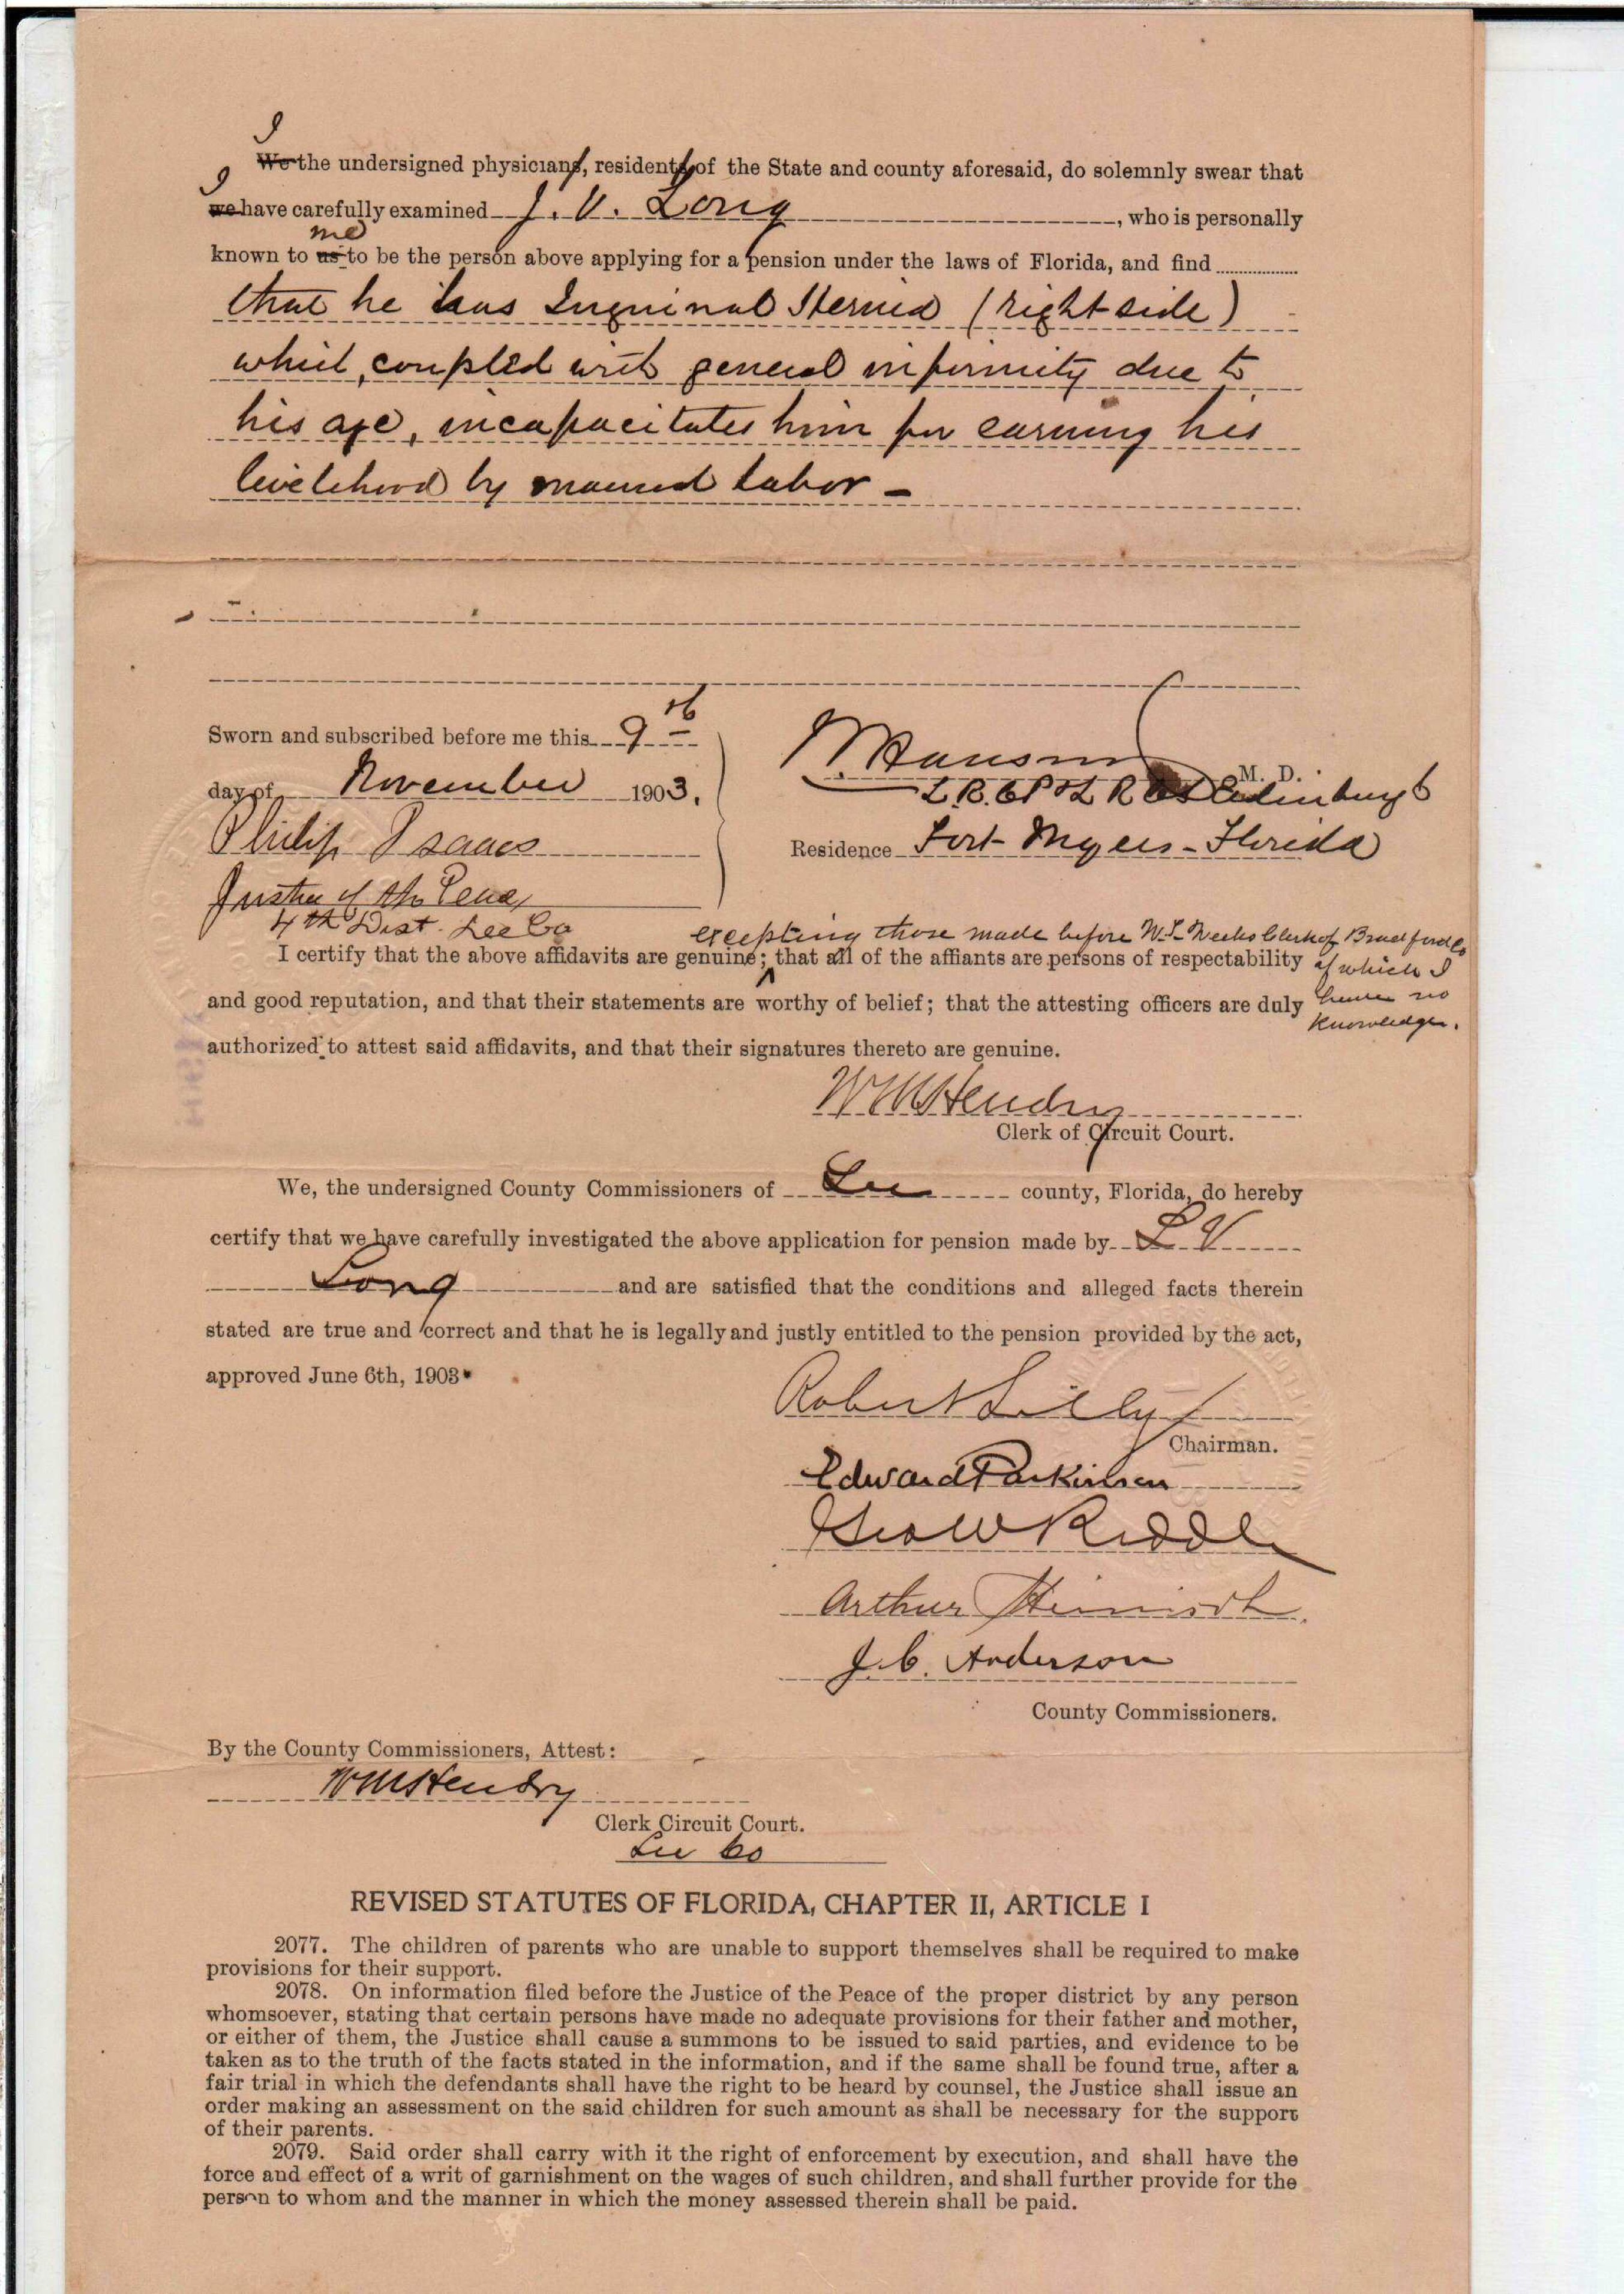 I
We the undersigned physicians, residents of the State and county aforesaid, do solemnly swear that
I
we have carefully examined J. V. Long, who is personally
me
known to us to be the person above applying for a pension under the laws of Florida, and find
that he has Inguinal Hernia (right side)
which, coupled with general infirmity due to
his age, incapacitates him for earning his
livelihood by manual labor -
Sworn and subscribed before me this 9th
day of November 1903.
Hanson M. D.
L.R.C.P & L.R.C.S Edinburgh
Philip Isaacs
Residence Fort Myers - Florida
Justice of the Peace
4th Dist. Lee Co
excepting those made before W. T. Weeks Clerk of Bradford Co
of which I
have no
knowledge.
I certify that the above affidavits are genuine; that all of the affiants are persons of respectability
and good reputation, and that their statements are worthy of belief; that the attesting officers are duly
authorized to attest said affidavits, and that their signatures thereto are genuine.
W M Hendry
Clerk of Circuit Court.
We, the undersigned County Commissioners of Lee county, Florida, do hereby
certify that we have carefully investigated the above application for pension made by L V
Long and are satisfied that the conditions and alleged facts therein
stated are true and correct and that he is legally and justly entitled to the pension provided by the act,
approved June 6th, 1903.
Robert Lilly
Chairman.
Edward Parkinson
Geo W Riddle
Arthur
J. C. Anderson
County Commissioners.
By the County Commissioners, Attest:
W M Hendry
Clerk Circuit Court.
Lee Co
REVISED STATUTES OF FLORIDA, CHAPTER II, ARTICLE I
2077. The children of parents who are unable to support themselves shall be required to make
provisions for their support.
2078. On information filed before the Justice of the Peace of the proper district by any person
whomsoever, stating that certain persons have made no adequate provisions for their father and mother,
or either of them, the Justice shall cause a summons to be issued to said parties, and evidence to be
taken as to the truth of the facts stated in the information, and if the same shall be found true, after a
fair trial in which the defendants shall have the right to be heard by counsel, the Justice shall issue an
order making an assessment on the said children for such amount as shall be necessary for the support
of their parents.
2079. Said order shall carry with it the right of enforcement by execution, and shall have the
force and effect of a writ of garnishment on the wages of such children, and shall further provide for the
person to whom and the manner in which the money assessed therein shall be paid.